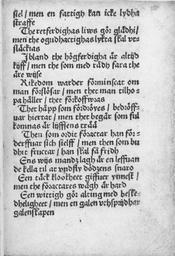 stel / men en fattigh kan icke lydha
straffe
The retferdighas liws gör gladhi /
men the ogudhactighas lycta skal vt
släckias
Jbland the högferdigha är altijd
kijff / men the som med rådh fara the
äre wijse
Rikedom warder forminscat om
man forslösar / men ther man tilho
pa håller / ther förkoffwas
Ther hopp som fördröyes / bedröff
uar hiertat / men ther begär som ful
komnas är lijffsens trää
Then som ordit föractar han for
derffuar sich sielff / men then som bu
dhit fructar / han skal få fridh
Ens wijs mandz lagh är en leffuan
de kella til at vndfly dödzens snaro
Een täck klookheet giffuer ynnest /
men the föractares wägh är hard
Een wittigh gör alting med beske
dheligheet / men en galen vthspridher
galenskapen